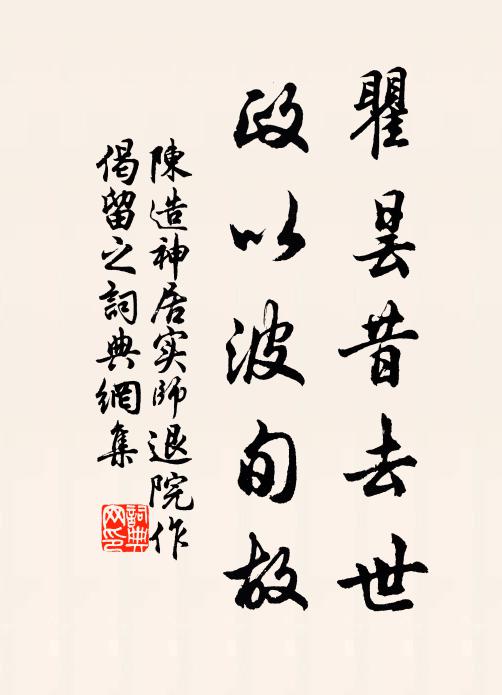 瞿昙昔去世
政以波旬故
陳造神居实師退院作
偈留之詞典網集
詞典网印